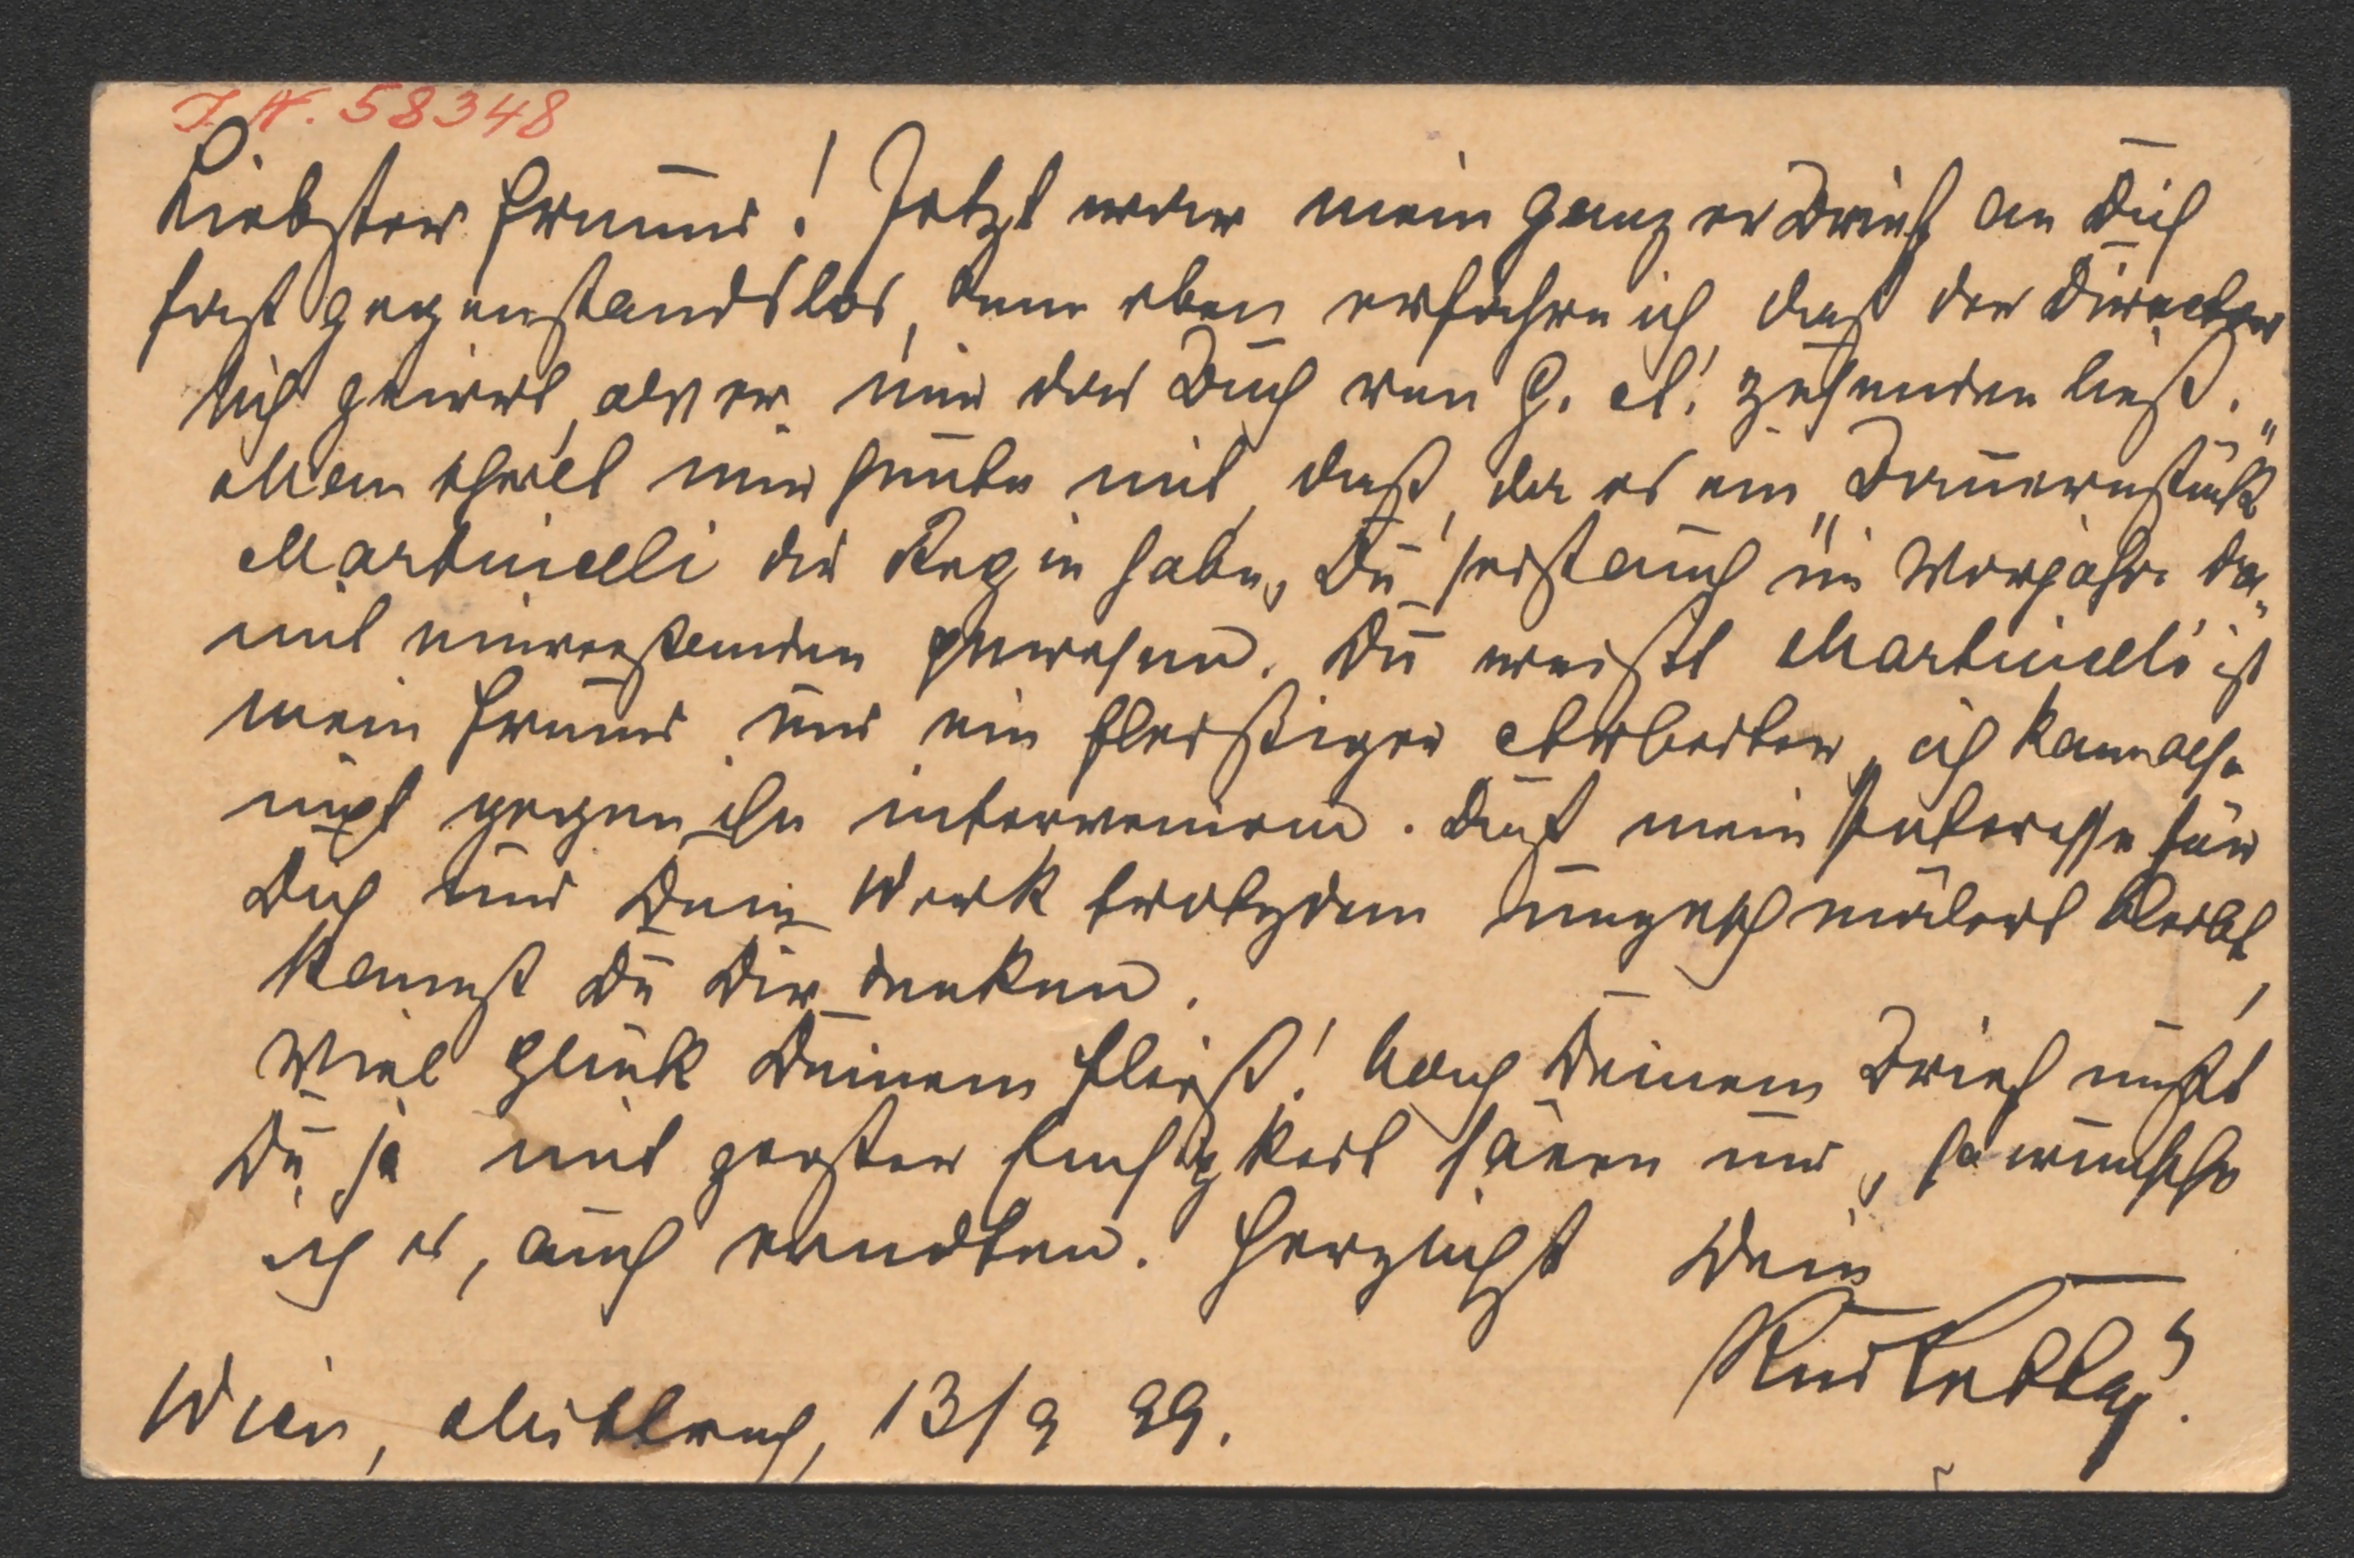 I. N. 58348
Liebster Freund! Jetzt wäre mein ganzer Brief an Dich
fast gegenstandslos, denn eben erfahre ich, daß der Director
sich geirrt, als er mir das Buch von G. A. zusenden ließ.
Man theilt mir heute mit, daß, da es ein „Bauernstück“
Martinelli die Regie habe, Du seist auch im Vorjahre da-
mit einverstanden gewesen. Du weißt Martinelli ist
mein Freund und ein fleißiger Arbeiter, ich kann also
nicht gegen ihn interveniren. Daß mein Interesse für
Dich und Dein Werk trotzdem ungeschmälert bleibt,
kannst Du Dir denken.
Viel Glück Deinem Fleiß! Nach Deinem Brief mußt
Du ja mit größter Emsigkeit säen und, so wünsche
ich es, auch erndten. Herzlichst Dein
Rud Tyrolt
Wien, Mittwoch, 13/9 99.